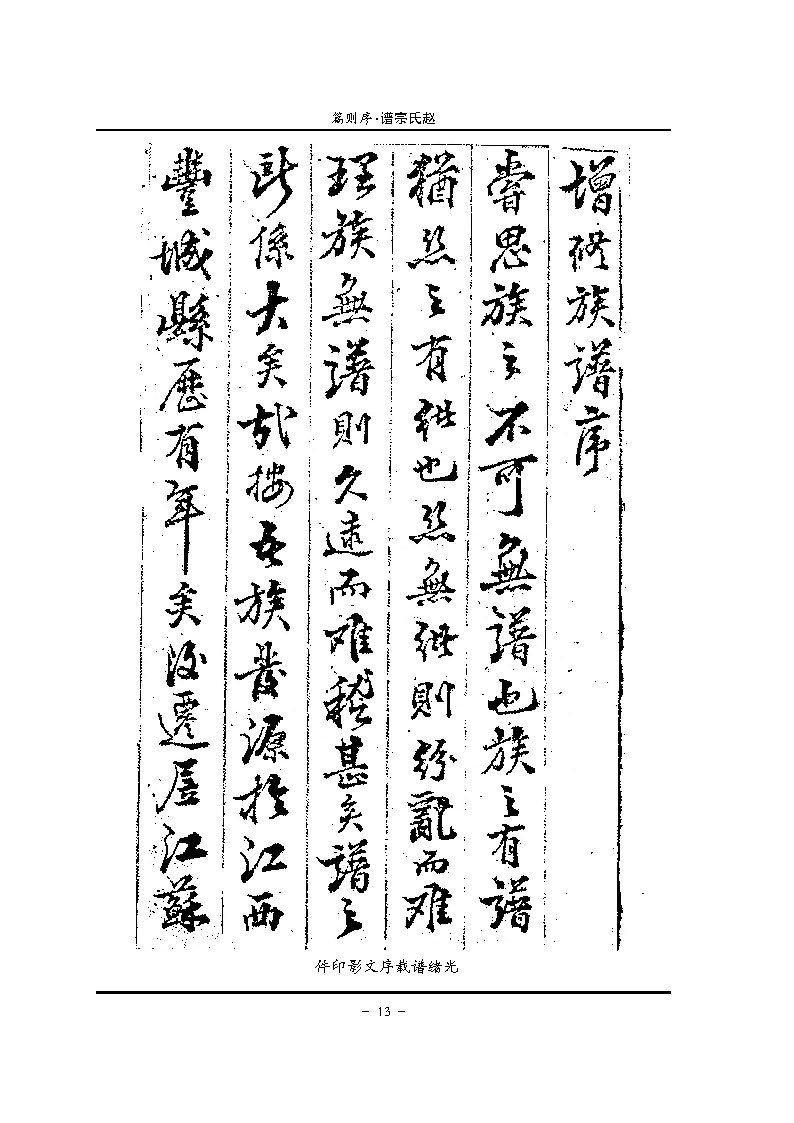 赵氏宗谱·序则篇
增修族譜序
嘗思族之不可無譜也族之有譜
猶丝之有紕也丝無紕則紛亂而难
理族無譜則久遠而难稽甚矣譜之
所係大矣哉按吾族發源於江西
豐城縣歷有年矣後遷居江蘇
光绪谱载序文影印件
- 13 -